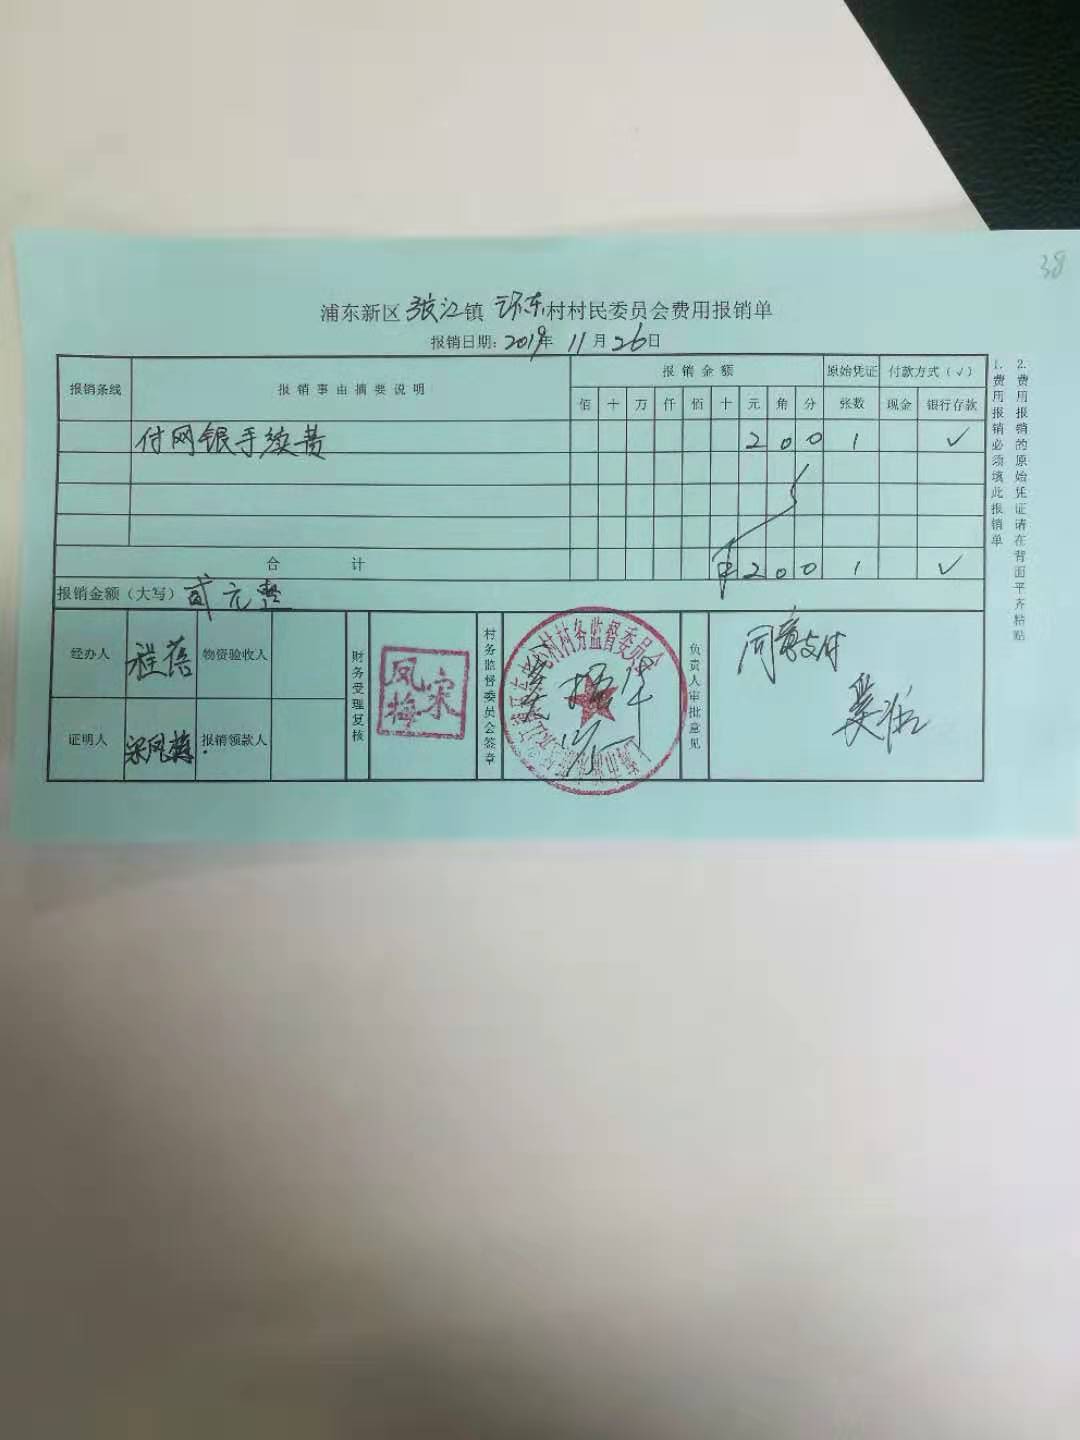 38
浦东新区张江镇环东村村民委员会费用报销单
报销日期：2019年11月26日
报销条线 报销事由摘要说明 报销金额 原始凭证 付款方式（√）
佰 十 万 仟 佰 十 元 角 分 张数 现金 银行存款
付网银手续费 2 0 0 1 √
合计 ¥ 2 0 0 1 √
报销金额（大写）贰元整
经办人 程蓓 物资验收人
证明人 宋凤梅 报销领款人
财务受理复核
宋凤梅
村务监督委员会签章
村村务监督委员会
负责人审批意见
同意支付
1.费用报销必须填此报销单
2.费用报销的原始凭证请在背面平齐粘贴